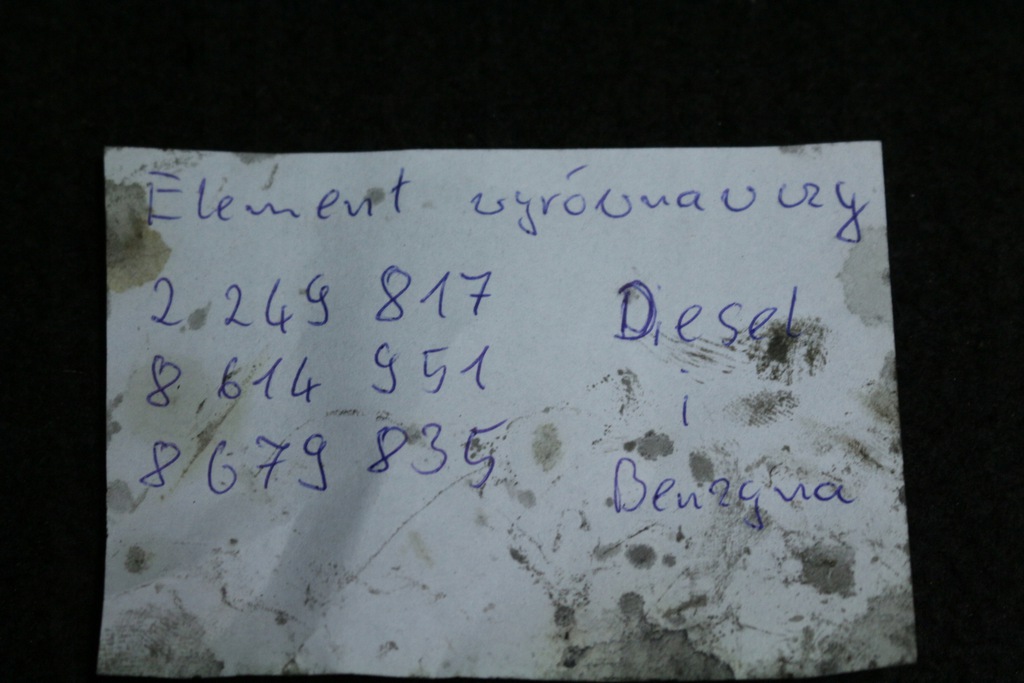 Element wyrównawczy
2 249 817 Diesel
8 614 951 i
8 679 835 Benzyna